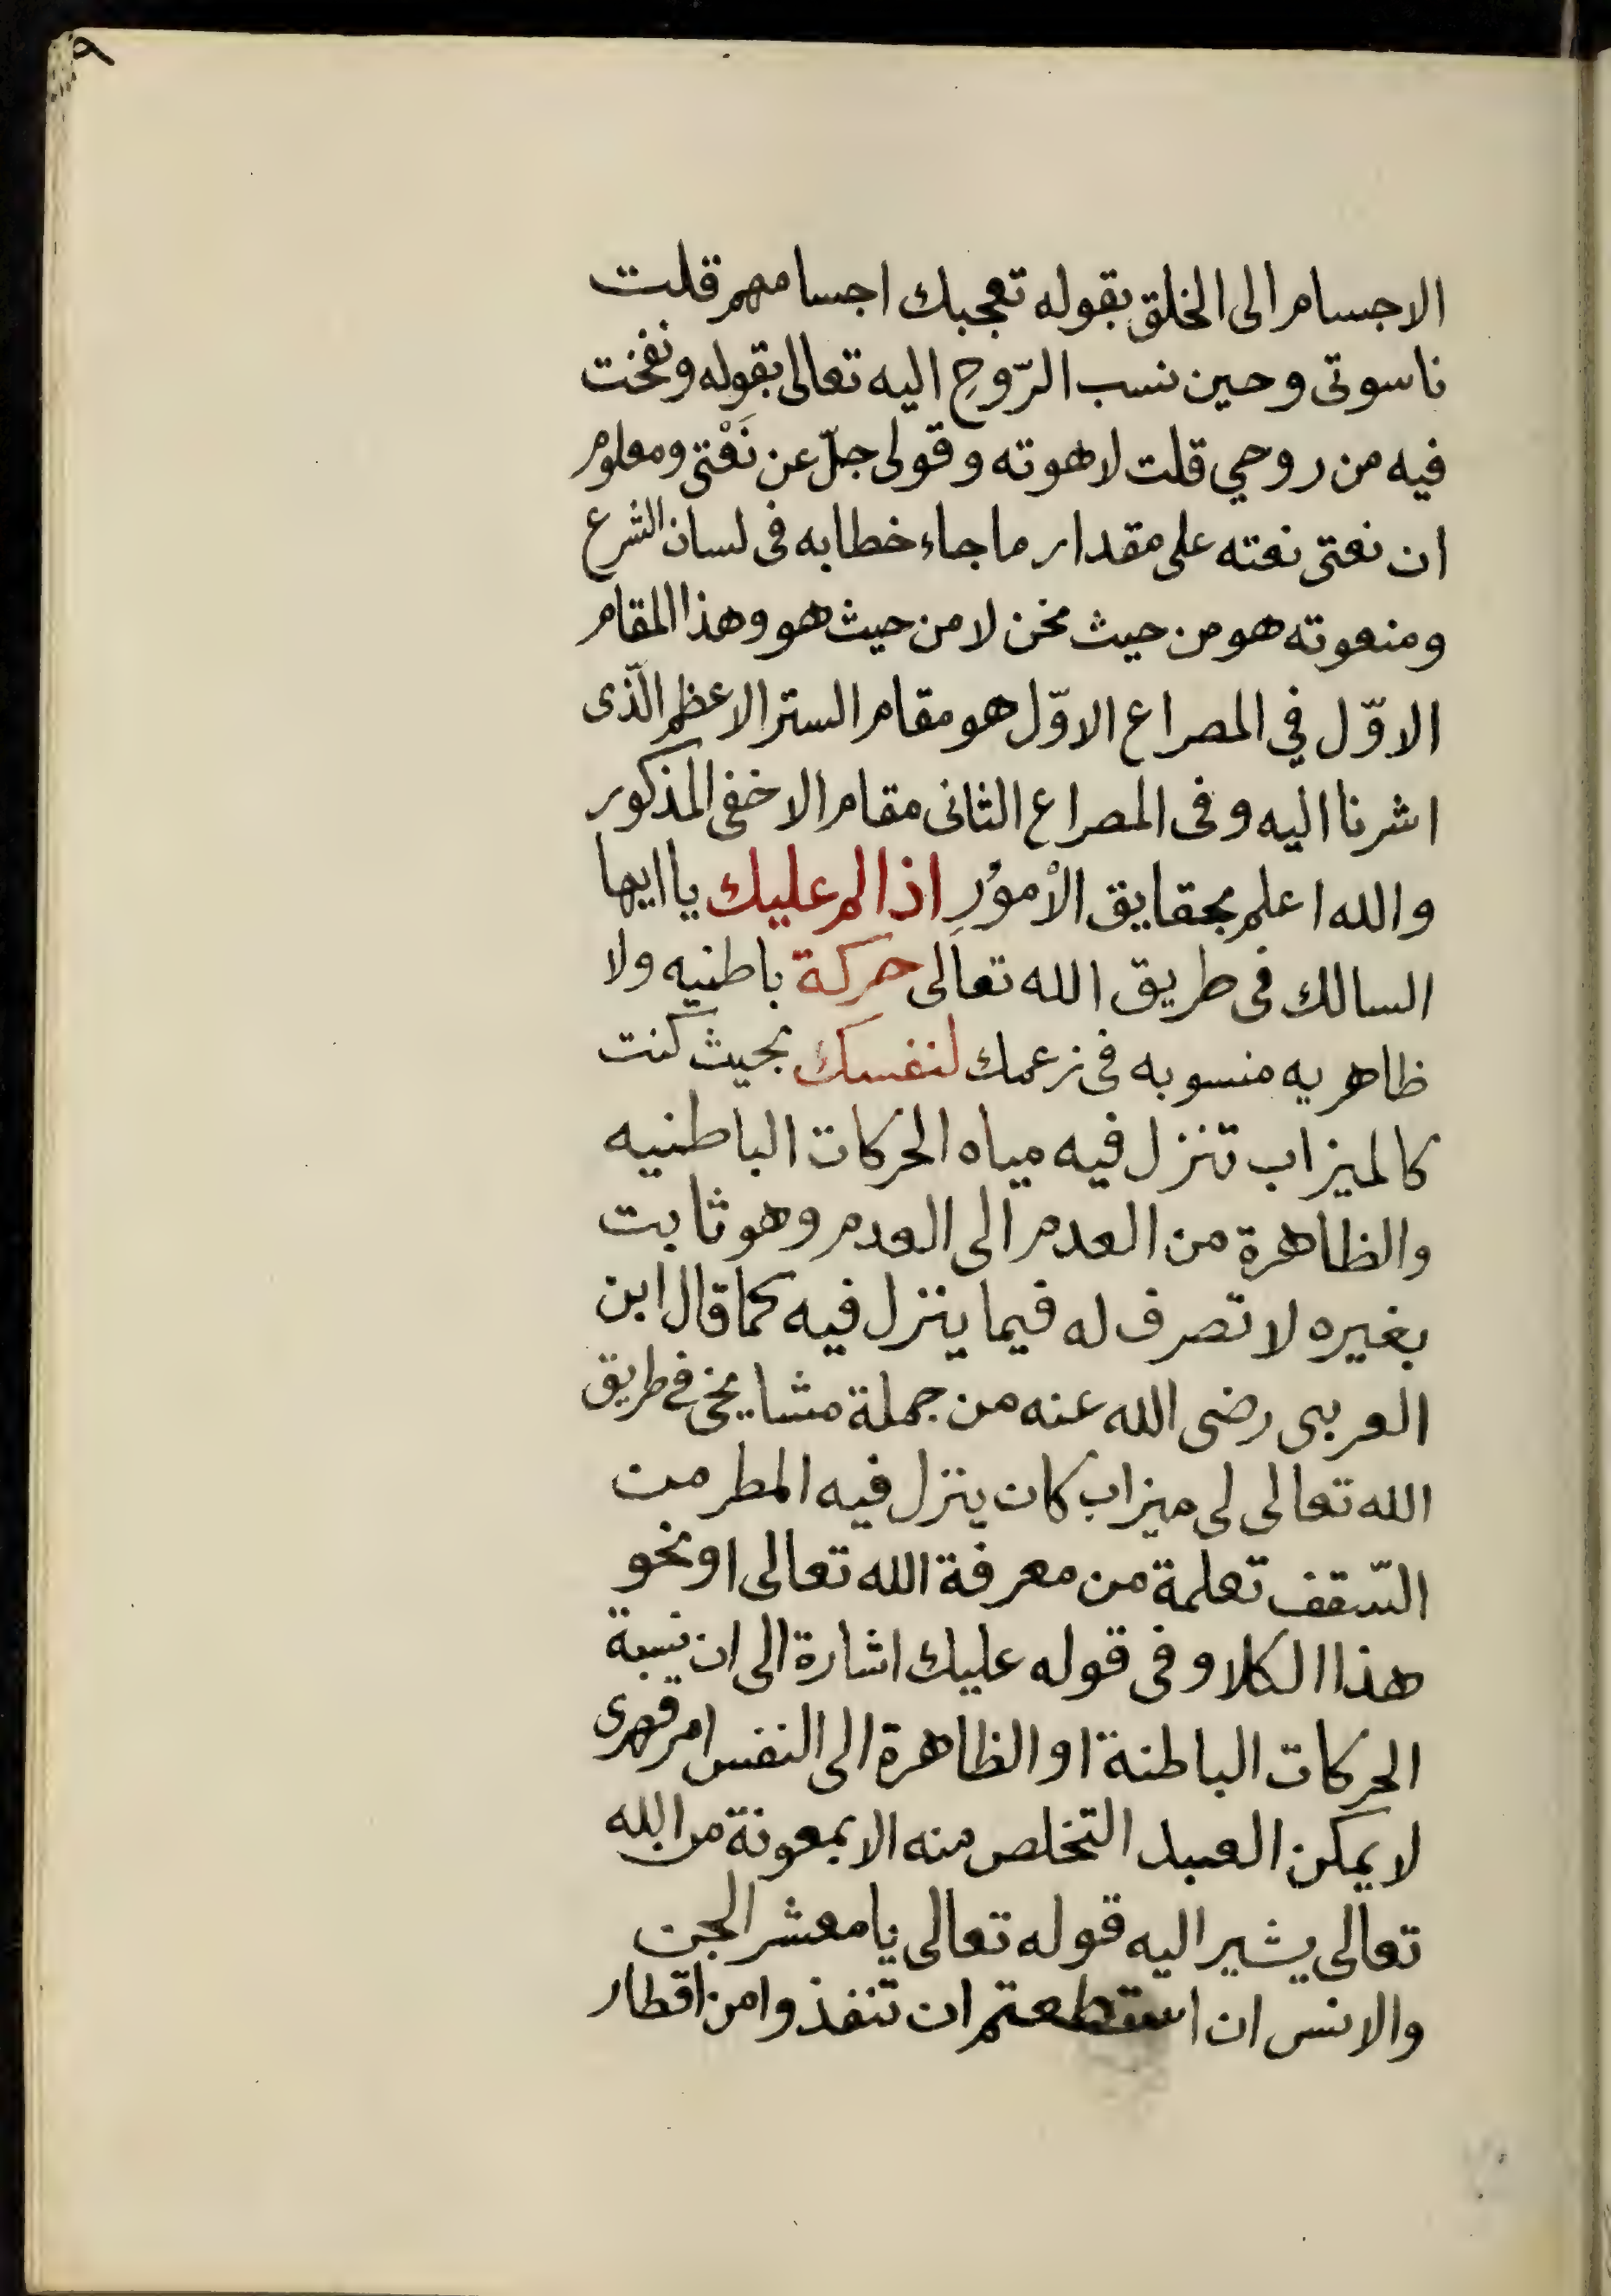 ٩
الاجسام الى الخلق بقوله تعجبك اجسامهم قلت
ناسوتى وحين نسب الرّوحِ اليه تعالى بقوله ونفخت
فيه من روحي قلت لاهوته وقولى جلّ عن نَعْتى ومعلوم
ان نعتى نعته على مقدار ما جاء خطابه فى لسان الشرع
ومنعوته هو من حيث نحن لا من حيث هو وهذا المقام
الاوّل في المصراع الاوّل هو مقام الستر الاعظم الّذى
اشرنا اليه وفى المصراع الثانى مقام الاخفى المذكور
والله اعلم بحقايق الأمؤرِ اذا لم عليك يا ايها
السالك فى طريق الله تعالى حركة باطنيه ولا
ظاهريه منسوبه فى زعمك لنفسك بحيث كنت
كالميزاب تنزل فيه مياه الحركات الباطنيه
والظاهرة من العدم الى العدم وهو ثابت
بغيره لا تصرف له فيما ينزل فيه كما قال ابن
العربى رضى الله عنه من جملة مشايخى فے طريق
الله تعالى لى ميزاب كان ينزل فيه المطر من
السّقف تعلمة من معرفة الله تعالى او نحو
هذا الكلا وفى قوله عليك اشارة الى ان نسبة
الحركات الباطنة او الظاهرة الى النفس امر قهرى
لا يمكن العبد التخلص منه الا بمعونة من الله
تعالى يشير اليه قوله تعالى يا معشر الجن
والانس ان استطعتم ان تنفذوا من اقطار